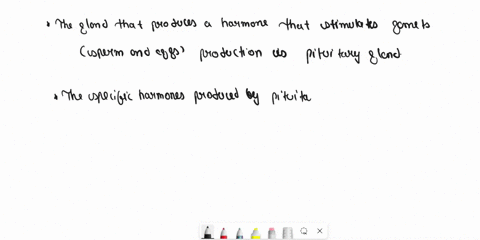 • The gland that produces a hormone that stimulates gamets
(sperm and eggs) production is pituitary gland
• The specific hormones produced by pituita